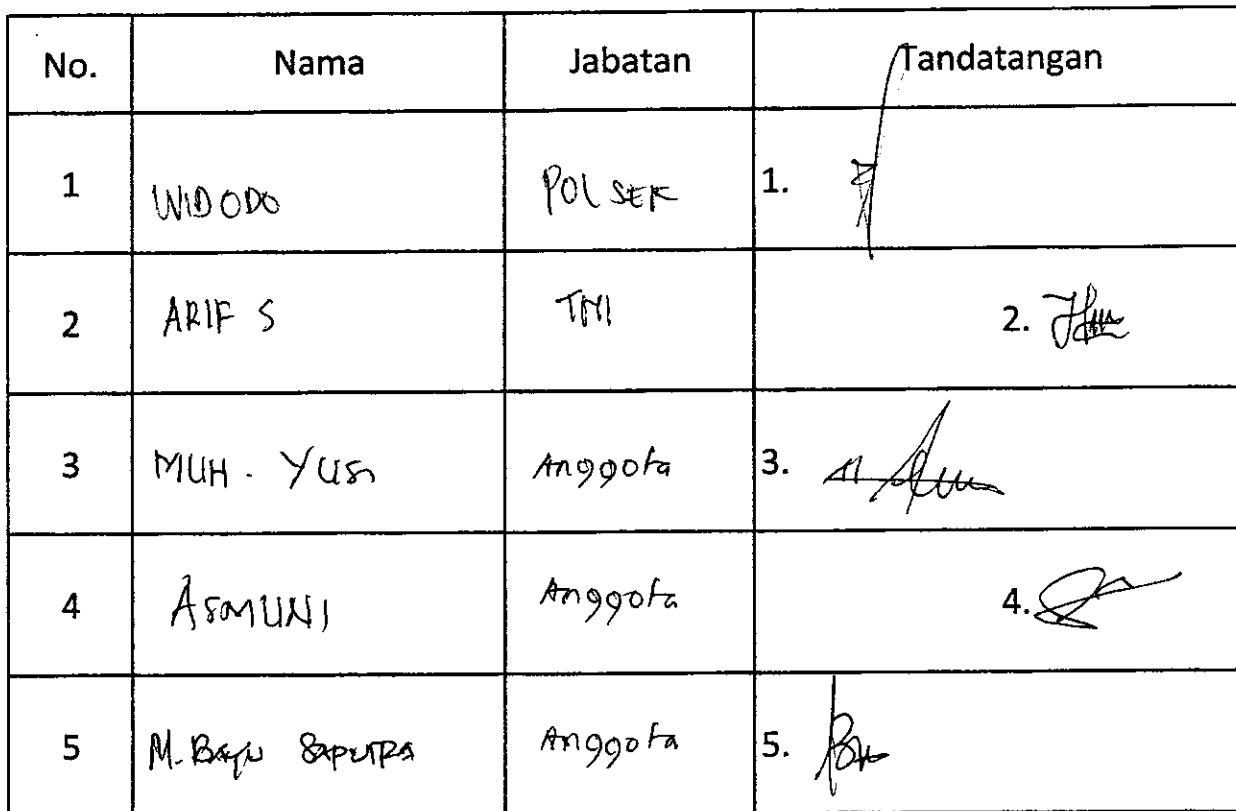 No. Nama Jabatan Tandatangan
1 WIDODO POLSEK 1.
2 ARIF S TNI 2.
3 MUH. YUSR Anggota 3.
4 ASMUNI Anggota 4.
5 M. BAYU SAPUTRA Anggota 5.